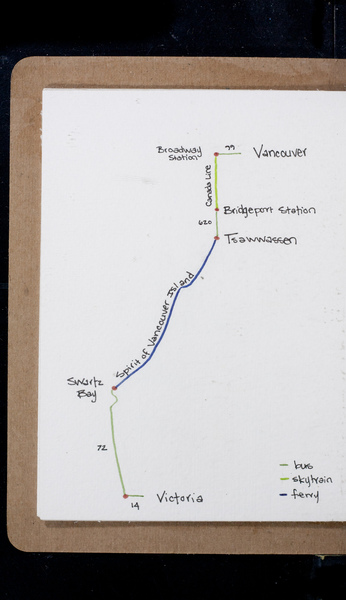 Broadway
Station
99
Vancouver
Canada Line
Bridgeport Station
620
Tsawwassen
Spirit of Vancouver Island
Swartz
Bay
72
bus
skytrain
ferry
14
Victoria